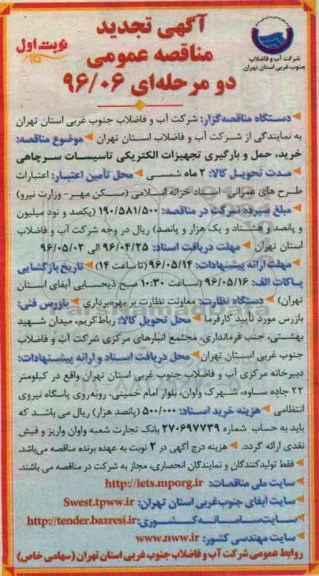 آگهی تجدید
مناقصه عمومی
دو مرحله‌ای ۹۶/۰۶
نوبت اول
شرکت آب و فاضلاب
جنوب غربی استان تهران
دستگاه مناقصه‌گزار: شرکت آب و فاضلاب جنوب غربی استان تهران
به نمایندگی از شرکت آب و فاضلاب استان تهران موضوع مناقصه:
خرید، حمل و بارگیری تجهیزات الکتریکی تاسیسات سرچاهی
مدت تحویل کالا: ۲ ماه شمسی محل تأمین اعتبار: اعتبارات
طرح های عمرانی- اسناد خزانه اسلامی (مسکن مهر- وزارت نیرو)
مبلغ سپرده شرکت در مناقصه: ۱۹۰/۵۸۱/۵۰۰ (یکصد و نود میلیون
و پانصد و هشتاد و یک هزار و پانصد) ریال در وجه شرکت آب و فاضلاب
استان تهران مهلت دریافت اسناد: ۹۶/۰۴/۲۵ الی ۹۶/۰۵/۰۲
مهلت ارائه پیشنهادات: ۹۶/۰۵/۱۴ (تا ساعت ۱۴) تاریخ بازگشایی
پاکات الف: ۹۶/۰۵/۱۶ (ساعت ۱۰:۳۰ صبح ذیحسابی آبفای استان
تهران) دستگاه نظارت: معاونت نظارت بر بهره‌برداری بازرس فنی:
بازرس مورد تأیید کارفرما محل تحویل کالا: رباط کریم، میدان شهید
بهشتی، جنب فرمانداری، مجتمع انبارهای مرکزی شرکت آب و فاضلاب
جنوب غربی استان تهران محل دریافت اسناد و ارائه پیشنهادات:
دبیرخانه مرکزی آب و فاضلاب جنوب غربی استان تهران واقع در کیلومتر
۲۲ جاده ساوه، شهرک واوان، بلوار امام خمینی، روبه‌روی پاسگاه نیروی
انتظامی هزینه خرید اسناد: ۵۰۰/۰۰۰ (پانصد هزار) ریال می باشد که
باید به حساب شماره ۲۷۰۶۹۷۷۳۹ بانک تجارت شعبه واوان واریز و فیش
نقدی ارائه گردد. هزینه درج آگهی در ۲ نوبت به عهده برنده مناقصه می‌باشد.
فقط تولیدکنندگان و نمایندگان انحصاری، مجاز به شرکت در مناقصه می باشند.
سایت ملی مناقصات: http://iets.mporg.ir
سایت آبفای جنوب‌غربی استان تهران: Swest.tpww.ir
سایت سامانه کشوری: http://tender.bazresi.ir
سایت مهندسی کشور: www.nww.ir
روابط عمومی شرکت آب و فاضلاب جنوب غربی استان تهران (سهامی خاص)